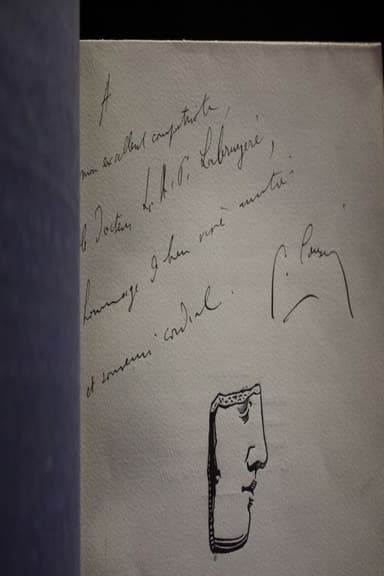 A
mon excellent compatriote,
le Docteur L. A. P. Labruyère,
hommage d'bien
et souvenir cordial.